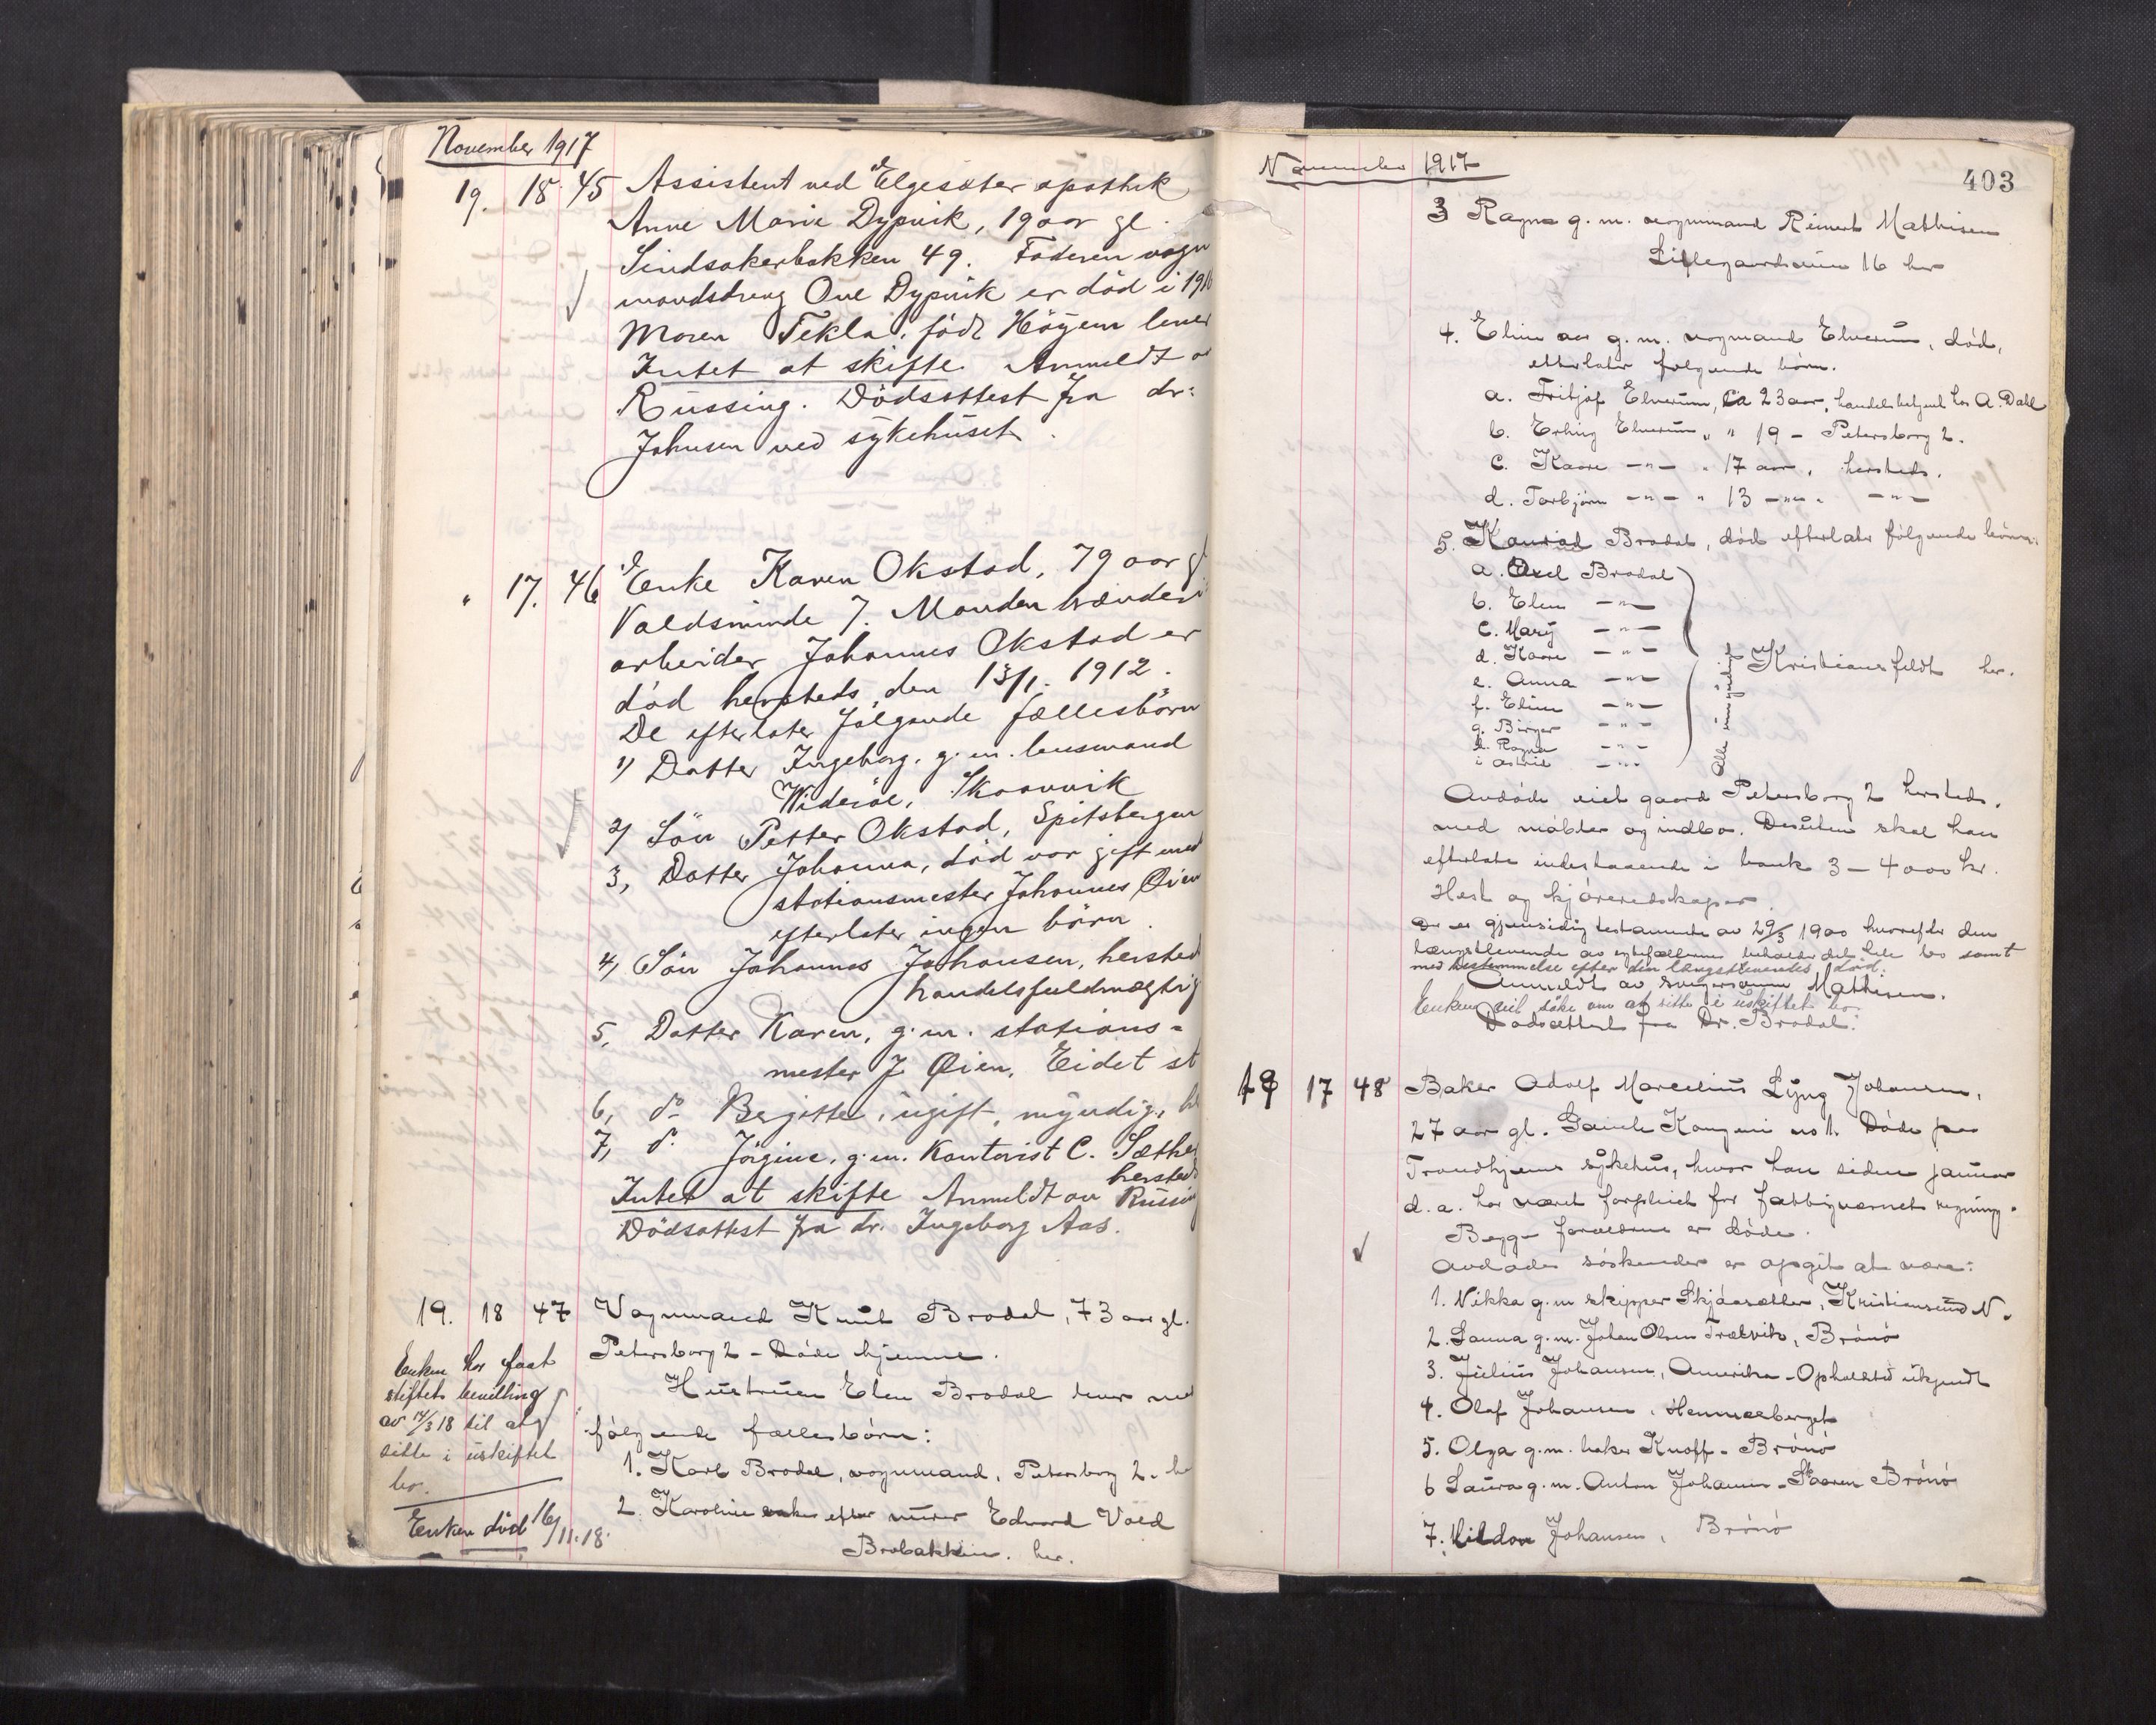 November 1917
19. 18. 45 Assistent ved Elgesæter apothek
Anne Marie Dypvik, 19 aar gl.
Sindsakerbakken 49. Faderen vogn
mandsdreng Ove Dypvik er död i 191
Moren Tekla, født Höÿem lever
Intet at skifte. Anmeldt
Rüssing. Dödsattest fra dr:
Johnsen ved sykehüset.
" 17. 46 Enke Karen Okstad, 79 aar
Valdsminde 7. Manden
arbeider Johannes Okstad er
död hersteds den 13/1. 1912.
De efterlater følgende fællesbörn
1) Datter Ingeborg, g.m. lensmand
Wideröe, Skaanvik
2) Sön Petter Okstad, Spitsbergen
3, Datter Johanna, död var gift med
stationsmester Johannes Øien
efterlater ingen börn.
4, Sön Johannes Johansen, hersted
handelsfuldmægtig
5, Datter Karen, g.m. stations-
mester J. Øien, Eidet st
6, do Bergitte, ugift, mÿndig,
7, do Jörgine, g.m. Kontorist C. Sæthe
hersted
Intet at skifte Anmeldt av Rüssin
Dödsattest fra dr. Ingeborg Aas.
19. 18 47 Vognmand Knüt Brodal, 73 aar gl.
Petersborg 2 - Döde hjemme.
Hustruen Elen Brodal lever med
fölgende fællesbörn:
1. Karl Brodal, vognmand, Petersborg 2.
2. Karoline enke efter mürer Edvard Vold
Brobakken. her.
Enken har faat
stiftets bevilling
av 14/3 18 til at
sitte i uskiftet
bo.
Enken död 16/11.18.
November 1917
403
3 Ragna g.m. vognmand Reinert Mathisen
Lillegaardsveien 16 her
4. Eline var g.m. vognmand Elverum, död,
efterlater følgende börn.
a. Fritjof Elverum, ca 23 aar, handelsbetjent hos A. Dahl
b. Erling Elverum " " 19 - Petersborg 2.
c. Kaare -"- " 17 aar, hersteds.
d. Torbjörn -"- " 13 -"- -"-
5. Konrad Brodal, död efterlater fölgende börn:
a. Axel Brodal
b. Elen -"-
c. Marÿ -"-
d. Kaare -"-
e. Anna -"-
f. Eline -"-
g. Birger -"-
h. Ragna -"-
i Astrid -"-
Alle umÿndige
Kristiansfeldt her.
Avdöde eiet gaard Petersborg 2 hersteds,
med möbler og indbo. Desüten skal han
efterlate indestaaende i bank 3-4000 kr.
Hest og kjöreredskaper.
Der er gjensidig testamente av 29/3 1900 hvorefter den
længstlevende av egtefællerne beholder det hele bo samt
med bestemmelse efter den længstlevendes död.
Anmeldt av svigersönnen Mathisen.
Enken vil söke om at sitte i uskiftet bo.
Dødsattest fra Dr. Brodal.
19 17 48 Baker Adolf Marcelius Lÿng Johansen,
27 aar gl. Gamle Kongevei no 1. Döde paa
Trondhjems sÿkehus, hvor han siden januar
d.a. har været forpleiet for fattigvæsnets regning.
Begge forældrene er döde.
Avdödes söskender er opgit at være:
1. Nikka g.m. skipper Skjaasætter, Kristiansund N.
2. Sanna g.m. Johan Olsen Trælvik, Brönö
3. Julius Johansen, Amerika - Opholdsted ukjendt
4. Olaf Johansen, Hammerberget
5. Olga g.m. baker Knoff - Brönö
6 Laura g.m. Anton Johansen - Saaren Brönö
7. Hildor Johansen, Brönö